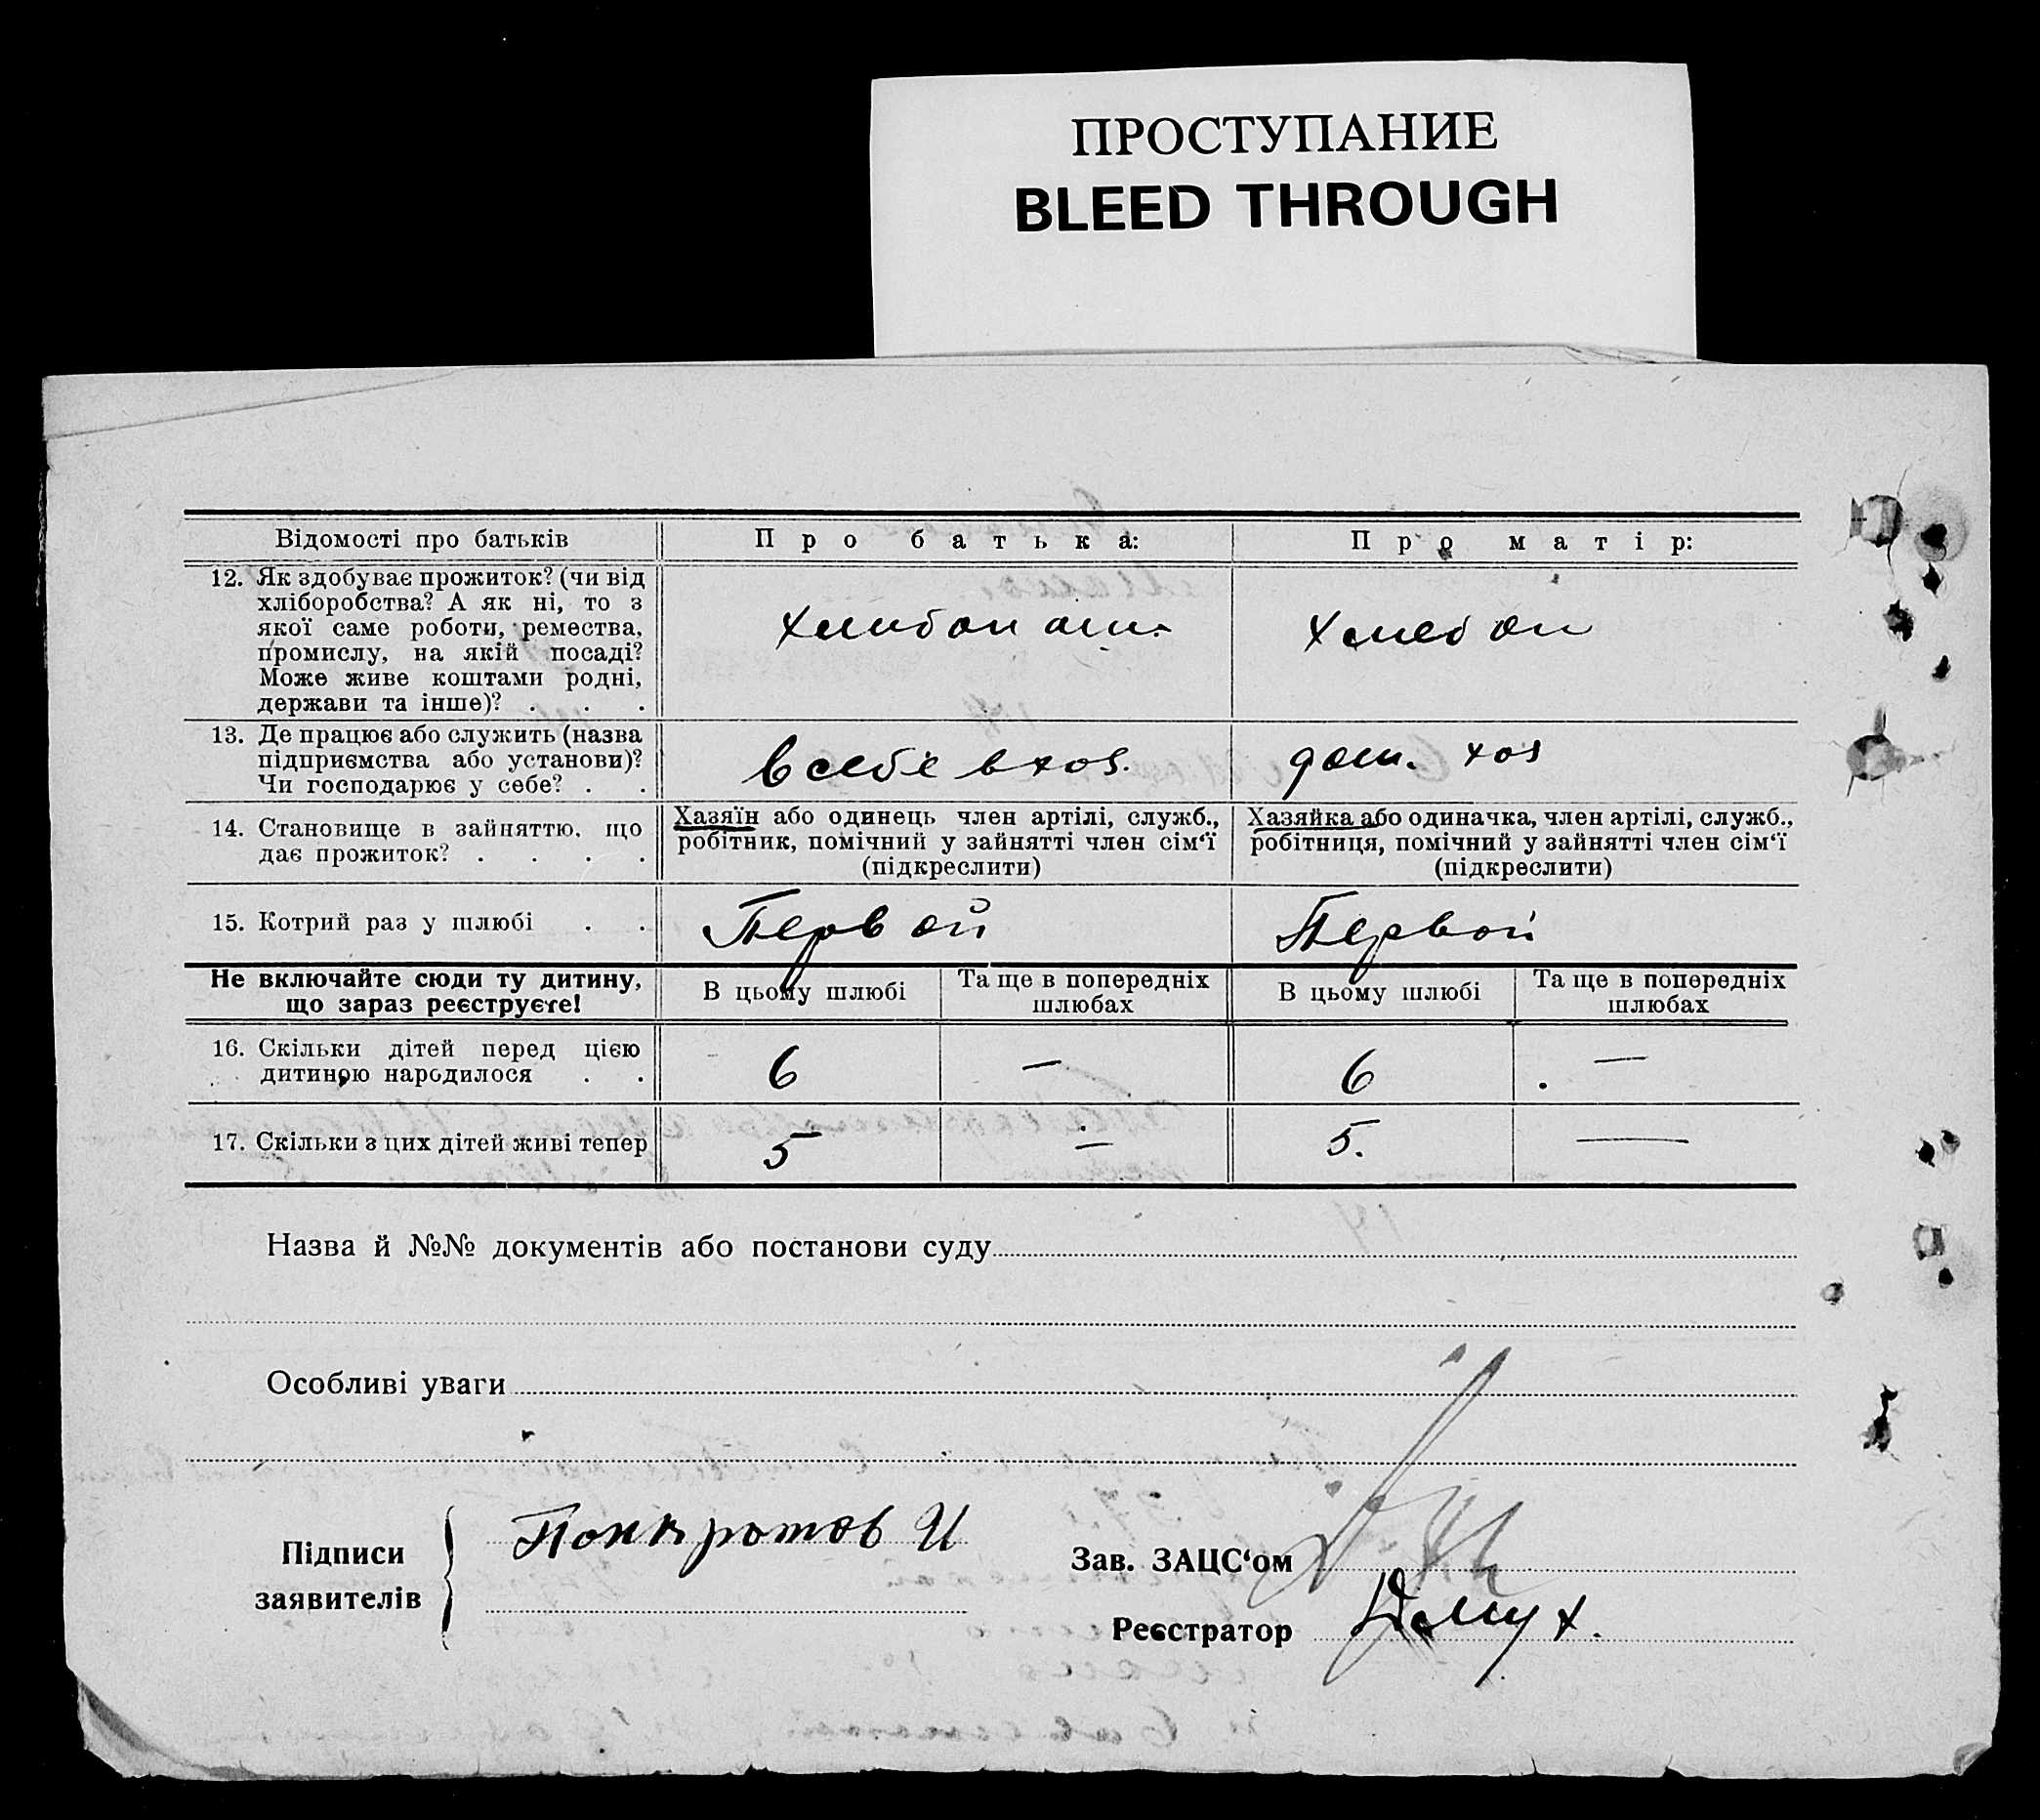 ПРОСТУПАНИЕ
BLEED THROUGH
Відомості про батьків
Про батька:
Про матір:
12. Як здобуває прожиток? (чи від
хліборобства? А як ні, то з
якої саме роботи, ремества,
промислу, на якій посаді?
Може живе коштами родні,
держави та інше)? . . .
13. Де працює або служить (назва
підприємства або установи)?
Чи господарює у себе? . .
в себе в хоз.
дом. хоз
14. Становище в зайняттю, що
дає прожиток? . . . .
Хазяїн або одинець член артілі, служб.,
робітник, помічний у зайнятті член сім‘ї
(підкреслити)
Хазяйка або одиначка, член артілі, служб.,
робітниця, помічний у зайнятті член сім‘ї
(підкреслити)
15. Котрий раз у шлюбі . .
Первой
Первой
Не включайте сюди ту дитину,
що зараз реєструєте!
В цьому шлюбі
Та ще в попередніх
шлюбах
В цьому шлюбі
Та ще в попередніх
шлюбах
16. Скільки дітей перед цією
дитиною народилося . .
6
—
6
—
17. Скільки з цих дітей живі тепер
5
—
5.
—
Назва й №№ документів або постанови суду
Особливі уваги
Підписи
заявителів
Понкротов И
Зав. ЗАЦС‘ом
Реєстратор